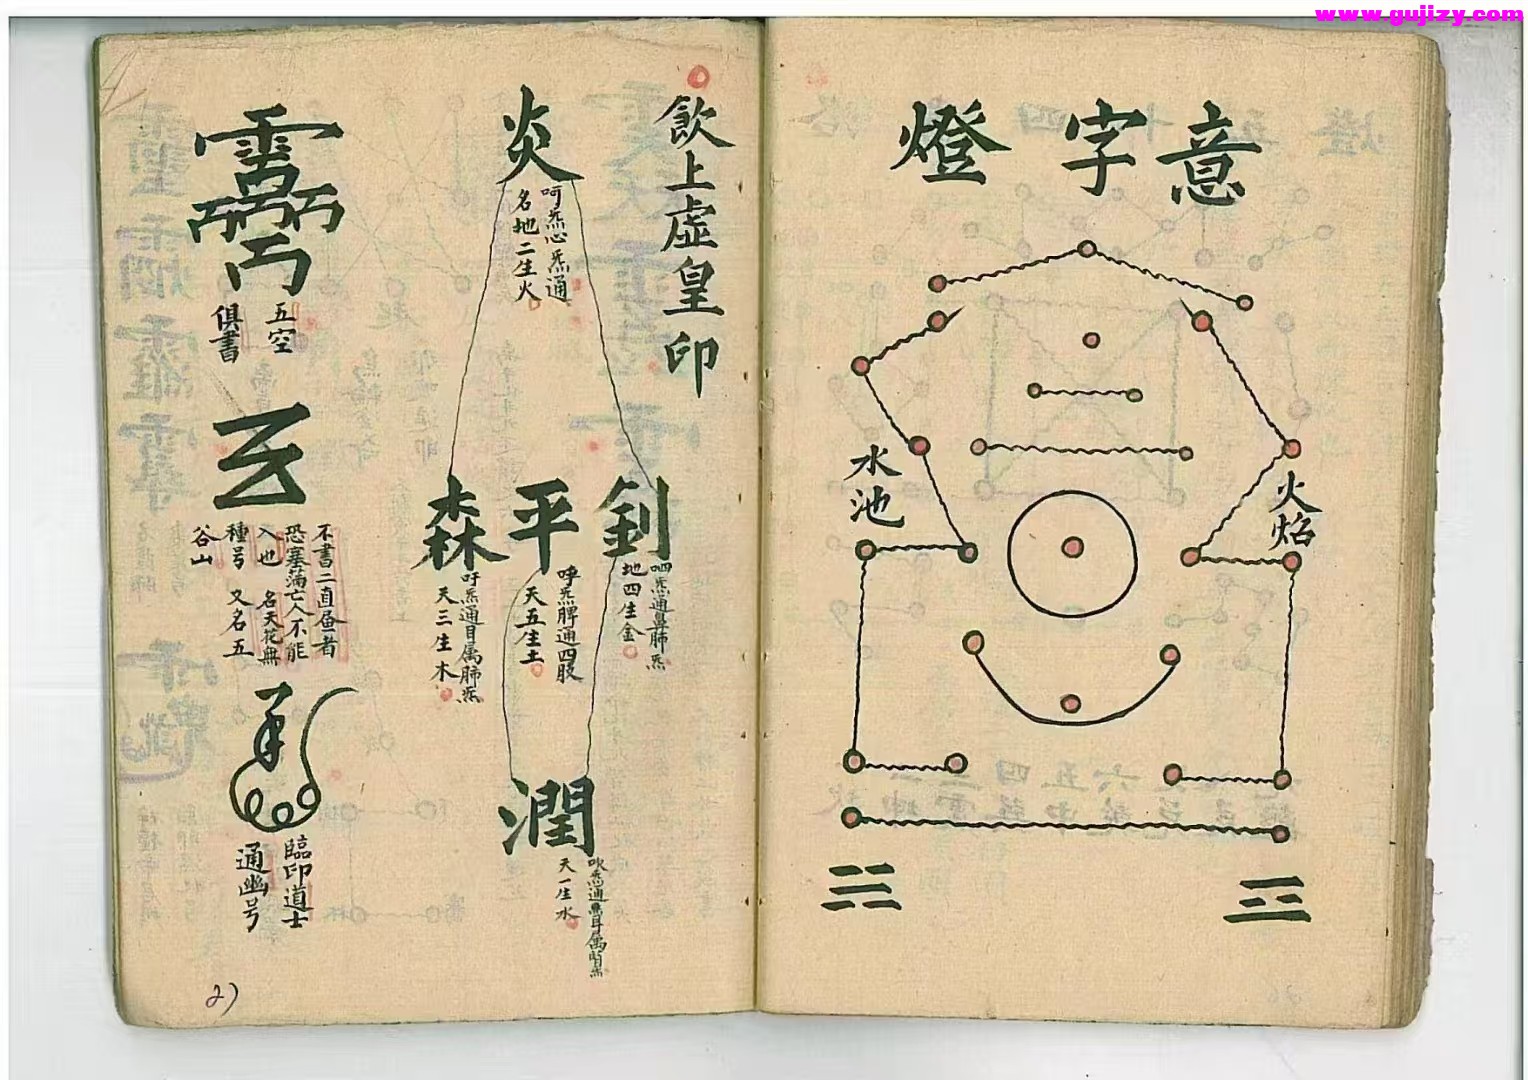 www.gujizy.com
意字燈
水池
火焰
飲上虛皇印
炎
呵炁心炁通
名地二生火
釗
呬炁通鼻肺炁
地四生金
平
呼炁脾通四肢
天五生土
森
吁炁通目属肺炁
天三生木
潤
天一生水
五空
俱書
不書二直昼者
恐塞满亡人不能
入也 名天花無
種号 又名五
谷山
臨印道士
通幽号
21